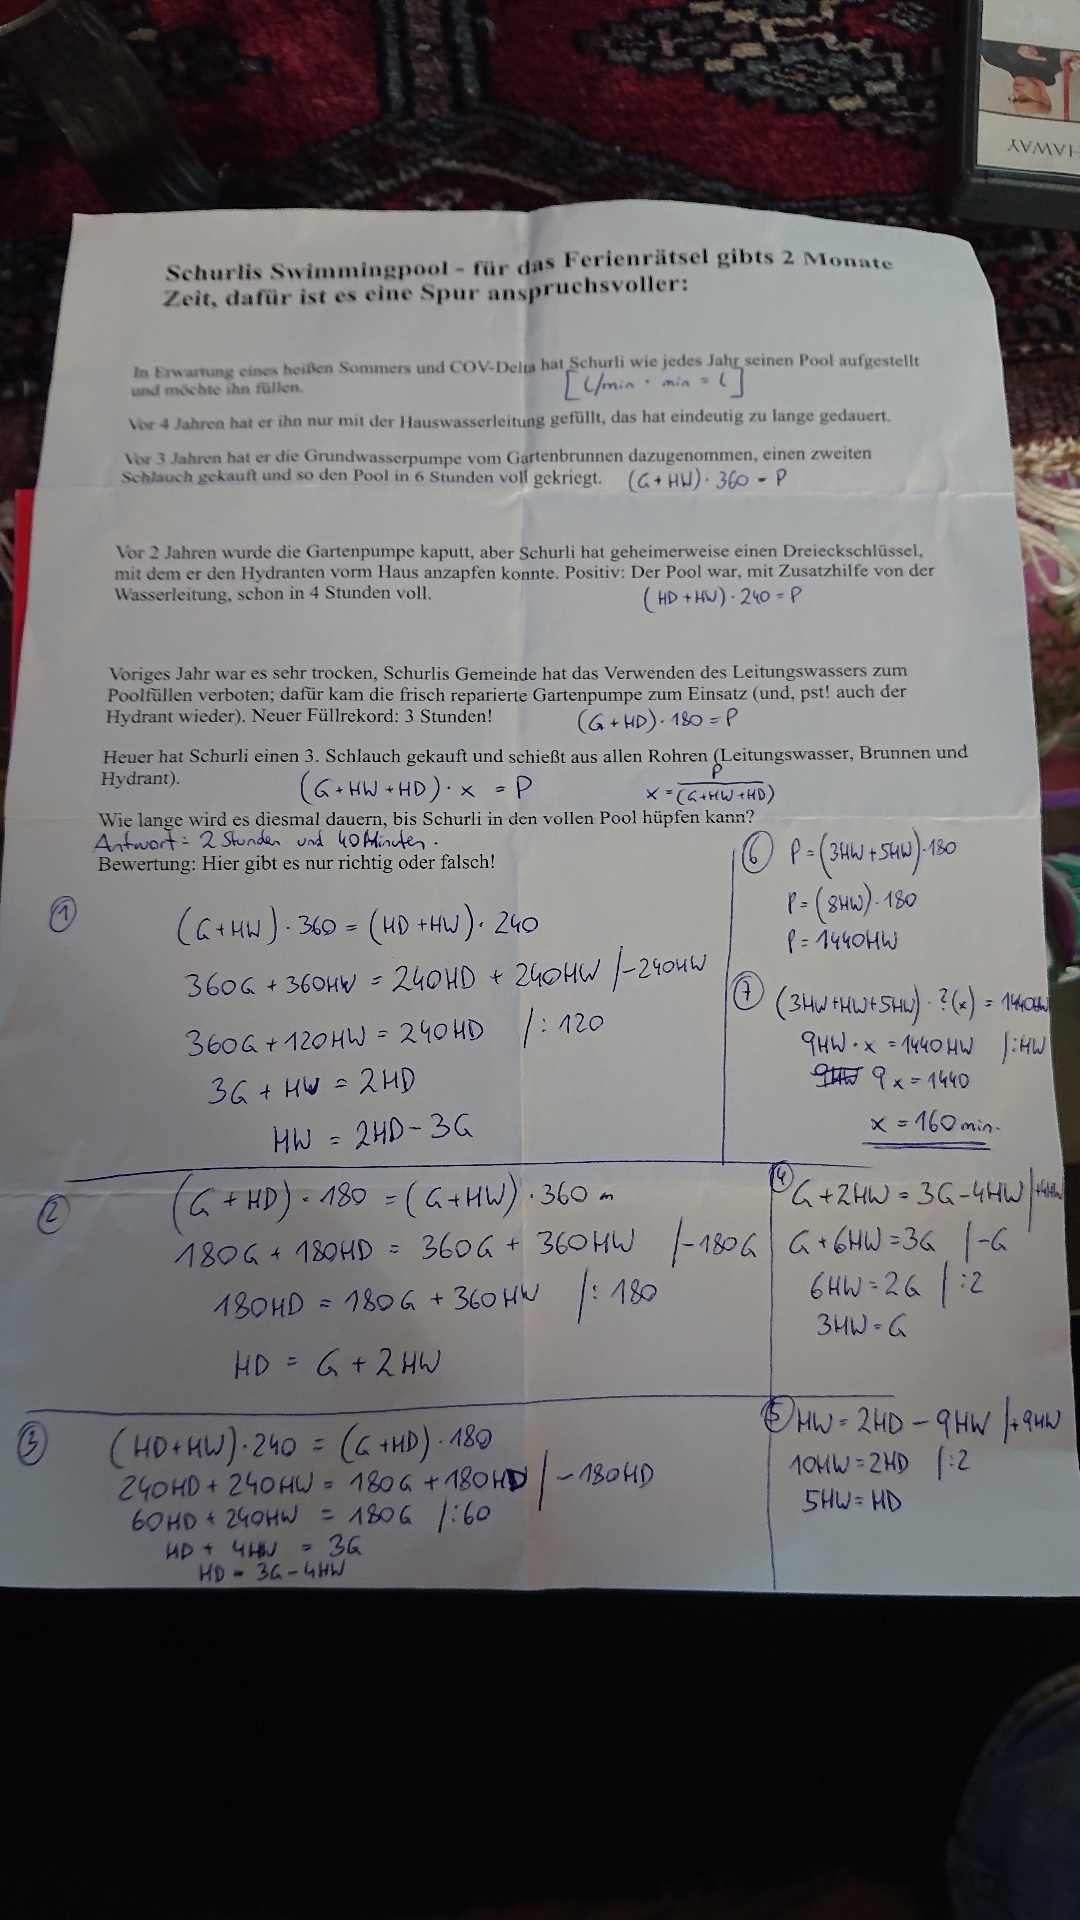 HAWAY
Schurlis Swimmingpool - für das Ferienrätsel gibts 2 Monate
Zeit, dafür ist es eine Spur anspruchsvoller:
In Erwartung eines heißen Sommers und COV-Delta hat Schurli wie jedes Jahr seinen Pool aufgestellt
und möchte ihn füllen.
[l/min · min = l]
Vor 4 Jahren hat er ihn nur mit der Hauswasserleitung gefüllt, das hat eindeutig zu lange gedauert.
Vor 3 Jahren hat er die Grundwasserpumpe vom Gartenbrunnen dazugenommen, einen zweiten
Schlauch gekauft und so den Pool in 6 Stunden voll gekriegt. (G+HW)·360 = P
Vor 2 Jahren wurde die Gartenpumpe kaputt, aber Schurli hat geheimerweise einen Dreieckschlüssel,
mit dem er den Hydranten vorm Haus anzapfen konnte. Positiv: Der Pool war, mit Zusatzhilfe von der
Wasserleitung, schon in 4 Stunden voll. (HD+HW)·240=P
Voriges Jahr war es sehr trocken, Schurlis Gemeinde hat das Verwenden des Leitungswassers zum
Poolfüllen verboten; dafür kam die frisch reparierte Gartenpumpe zum Einsatz (und, pst! auch der
Hydrant wieder). Neuer Füllrekord: 3 Stunden! (G+HD)·180=P
Heuer hat Schurli einen 3. Schlauch gekauft und schießt aus allen Rohren (Leitungswasser, Brunnen und
Hydrant). (G+HW+HD)·x = P x = P/(G+HW+HD)
Wie lange wird es diesmal dauern, bis Schurli in den vollen Pool hüpfen kann?
Antwort = 2 Stunden und 40 Minuten.
Bewertung: Hier gibt es nur richtig oder falsch!
1
(G+HW)·360 = (HD+HW)·240
360G + 360HW = 240HD + 240HW /-240HW
360G+120HW = 240HD /:120
3G + HW = 2HD
HW = 2HD-3G
6 P=(3HW+5HW)·180
P=(8HW)·180
P=1440HW
7 (3HW+HW+5HW)·?(x) = 1440HW
9HW·x =1440HW /:HW
9HW 9x=1440
x = 160min.
2
(G+HD)·180 = (G+HW)·360
180G + 180HD = 360G + 360HW /-180G
180HD = 180G + 360HW /:180
HD = G + 2HW
4 G+2HW = 3G-4HW /+4HW
G+6HW=3G /-G
6HW=2G /:2
3HW=G
3
(HD+HW)·240 = (G+HD)·180
240HD + 240HW = 180G + 180HD /-180HD
60HD + 240HW = 180G /:60
HD + 4HW = 3G
HD = 3G-4HW
5 HW=2HD-9HW /+9HW
10HW=2HD /:2
5HW=HD